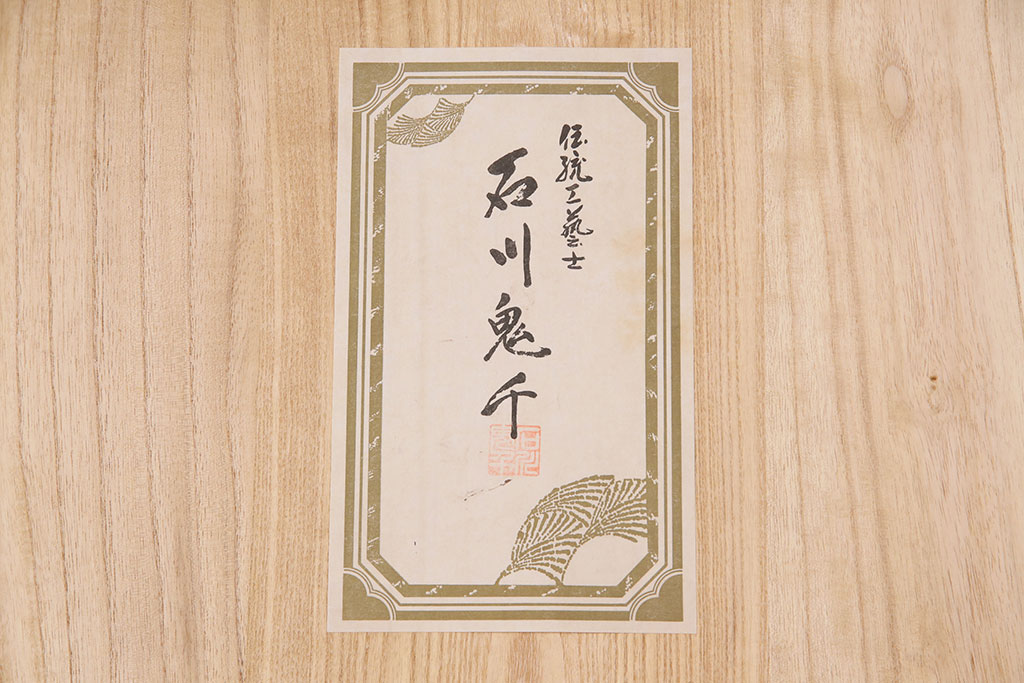 伝統工藝士
石川鬼千